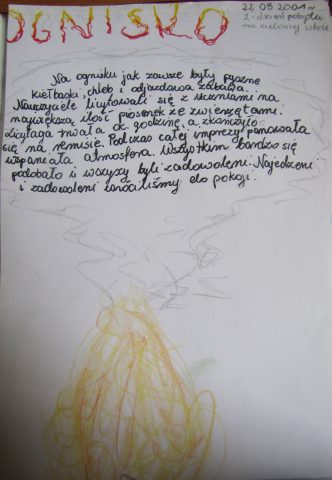 OGNISKO
22 05 2001~
2-dzień pobytu
na zielonej szkole
Na ognisku jak zawsze były pyszne
kiełbaski, chleb i odjazdowa zabawa.
Nauczyciele licytowali się z uczniami na
największą ilość piosenek ze zwierzętami.
Licytacja trwała ok. godzinę, a zkończyło
się na remisie. Podczas całej imprezy panowała
wspaniała atmosfera. Wszystkim bardzo się
podobało i wszyscy byli zadowoleni. Najedzeni
i zadowoleni wróciliśmy do pokoji.